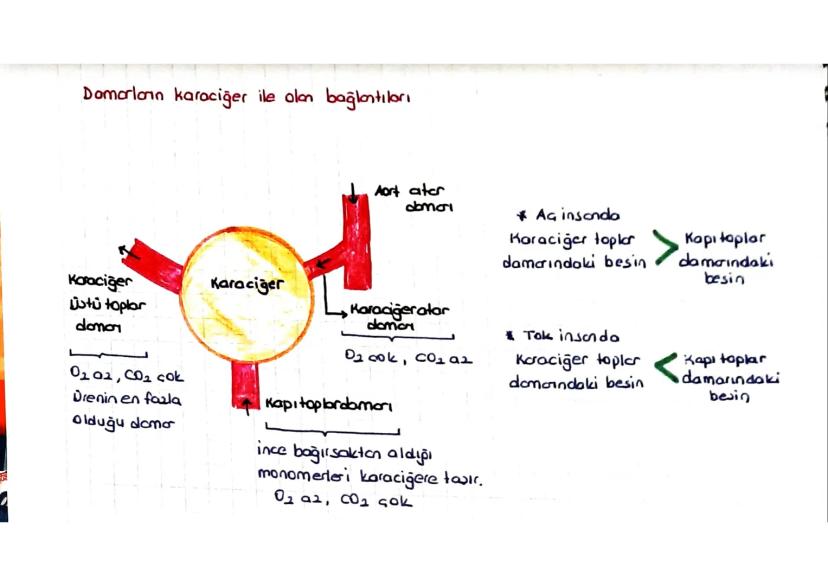 Damarların karaciğer ile olan bağlantıları
Aort atar
damarı
Karaciğer
Karaciğer atar
damarı
O2 çok, CO2 az
Karaciğer
üstü toplar
damarı
O2 az, CO2 çok
Ürenin en fazla
olduğu damar
Kapı toplardamarı
ince bağırsaktan aldığı
monomerleri karaciğere taşır.
O2 az, CO2 çok
* Aç insanda
Karaciğer toplar
damarındaki besin
>
Kapı toplar
damarındaki
besin
* Tok insanda
Karaciğer toplar
damarındaki besin
<
Kapı toplar
damarındaki
besin